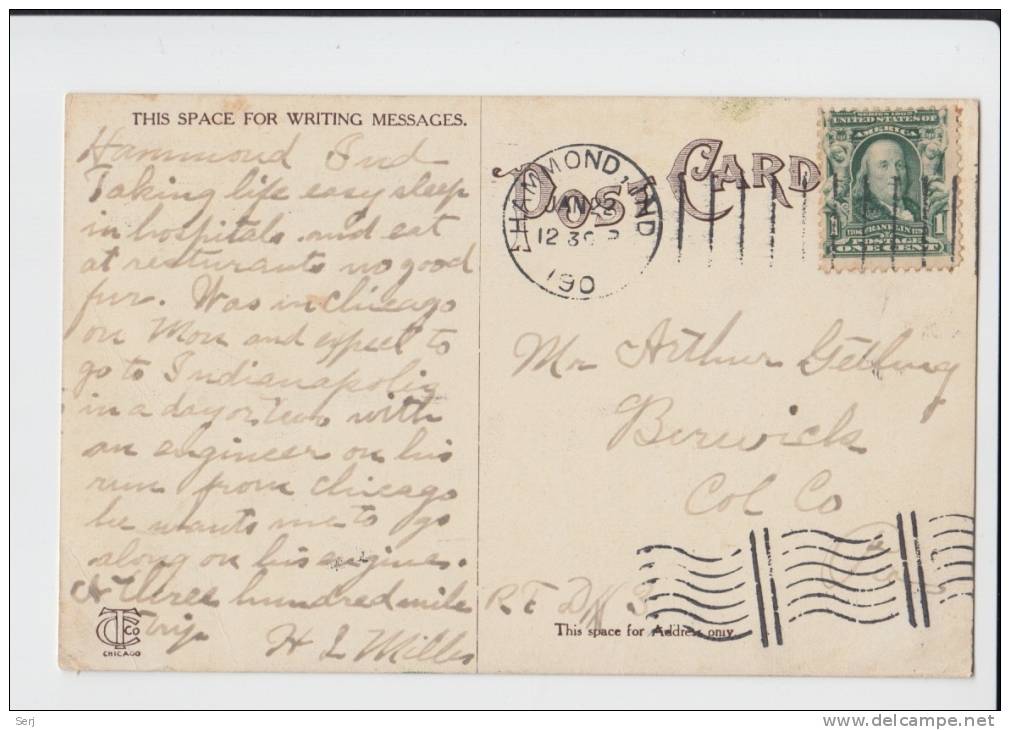 THIS SPACE FOR WRITING MESSAGES.
Hammond Ind
Taking life easy sleep
in hospitals and eat
at resturants no good
fur. Was in Chicago
on Mon and expect to
go to Indianapolis
in a day or two with
an engineer on his
run from Chicago
he wants me to go
along on his engine.
A three hundred mile
trip
H L Miller
CTCO
CHICAGO
POST CARD
HAMMOND, IND
JAN 22
12 30 P
190
SERIES 1902
UNITED STATES OF
AMERICA
1706 FRANKLIN 1790
POSTAGE
1
ONE CENT
Mr Arthur
Berwick
Col Co
Pa
R F D # 3
This space for Address only
Serj
www.delcampe.net